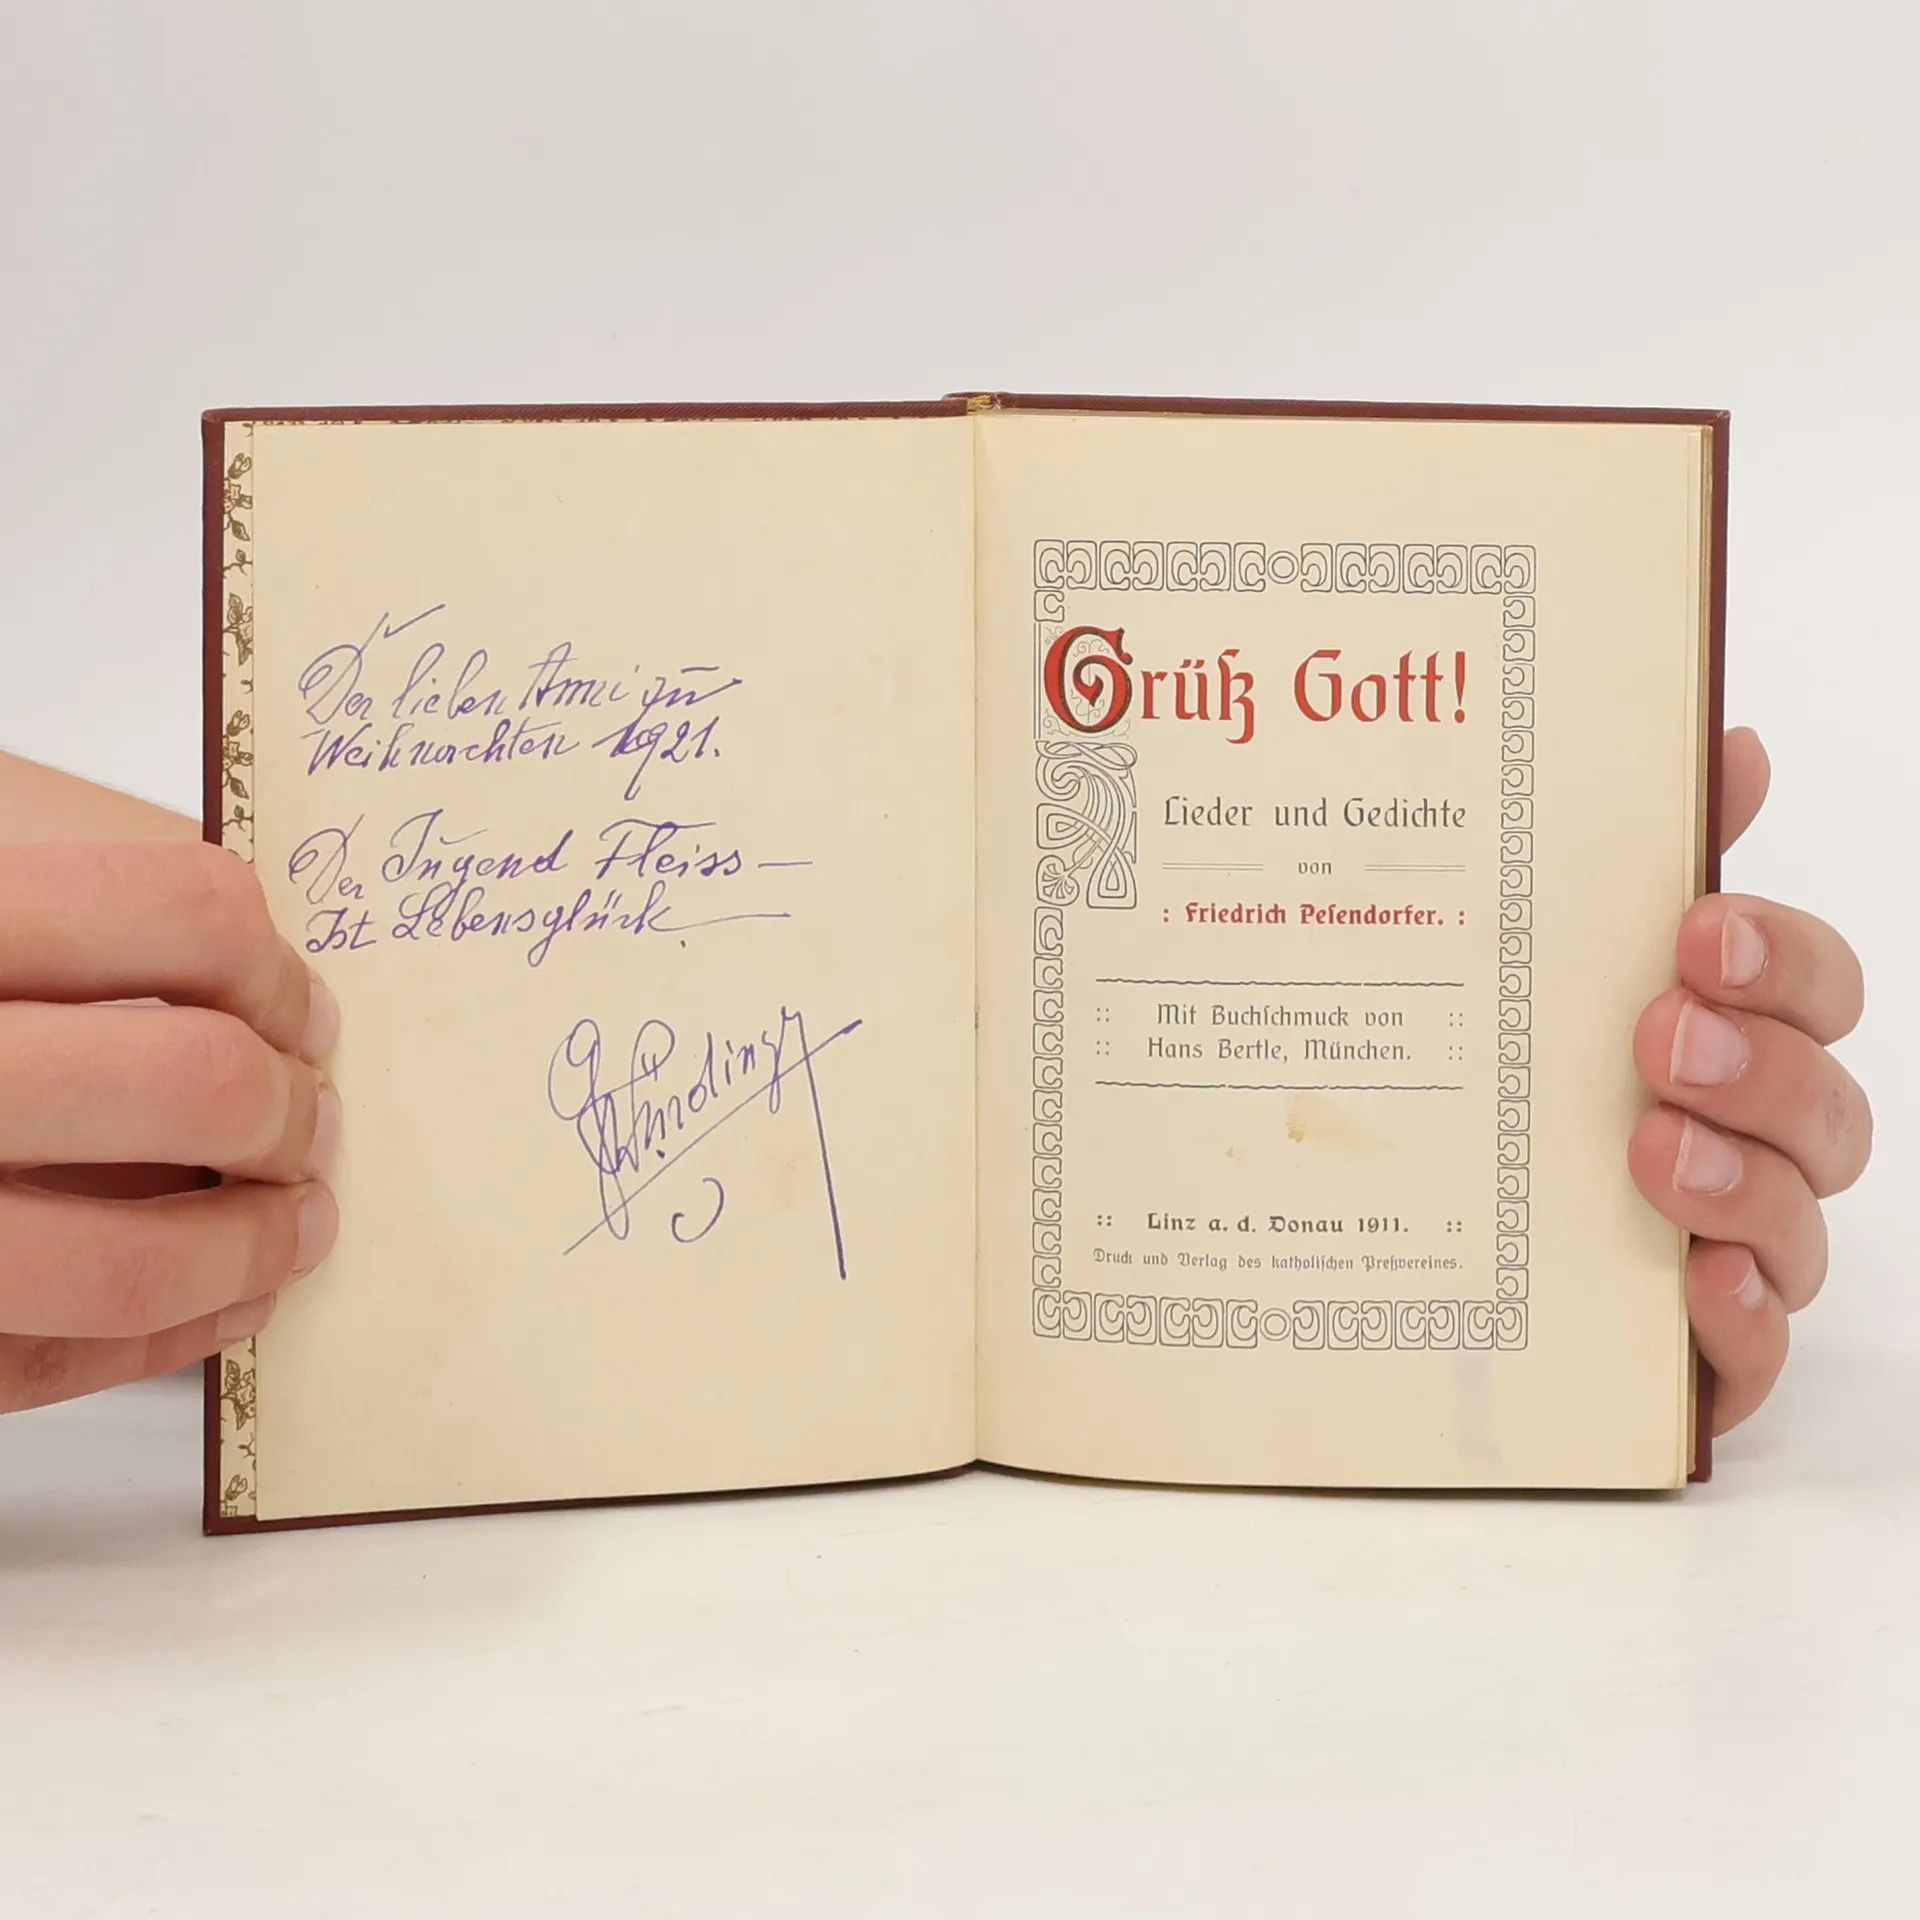 Der lieben Anni zu
Weihnachten 1921.
Der Jugend Fleiss –
Ist Lebensglück.
Grüß Gott!
Lieder und Gedichte
von
: Friedrich Pesendorfer. :
:: Mit Buchschmuck von ::
:: Hans Bertle, München. ::
:: Linz a. d. Donau 1911. ::
Druck und Verlag des katholischen Preßvereines.